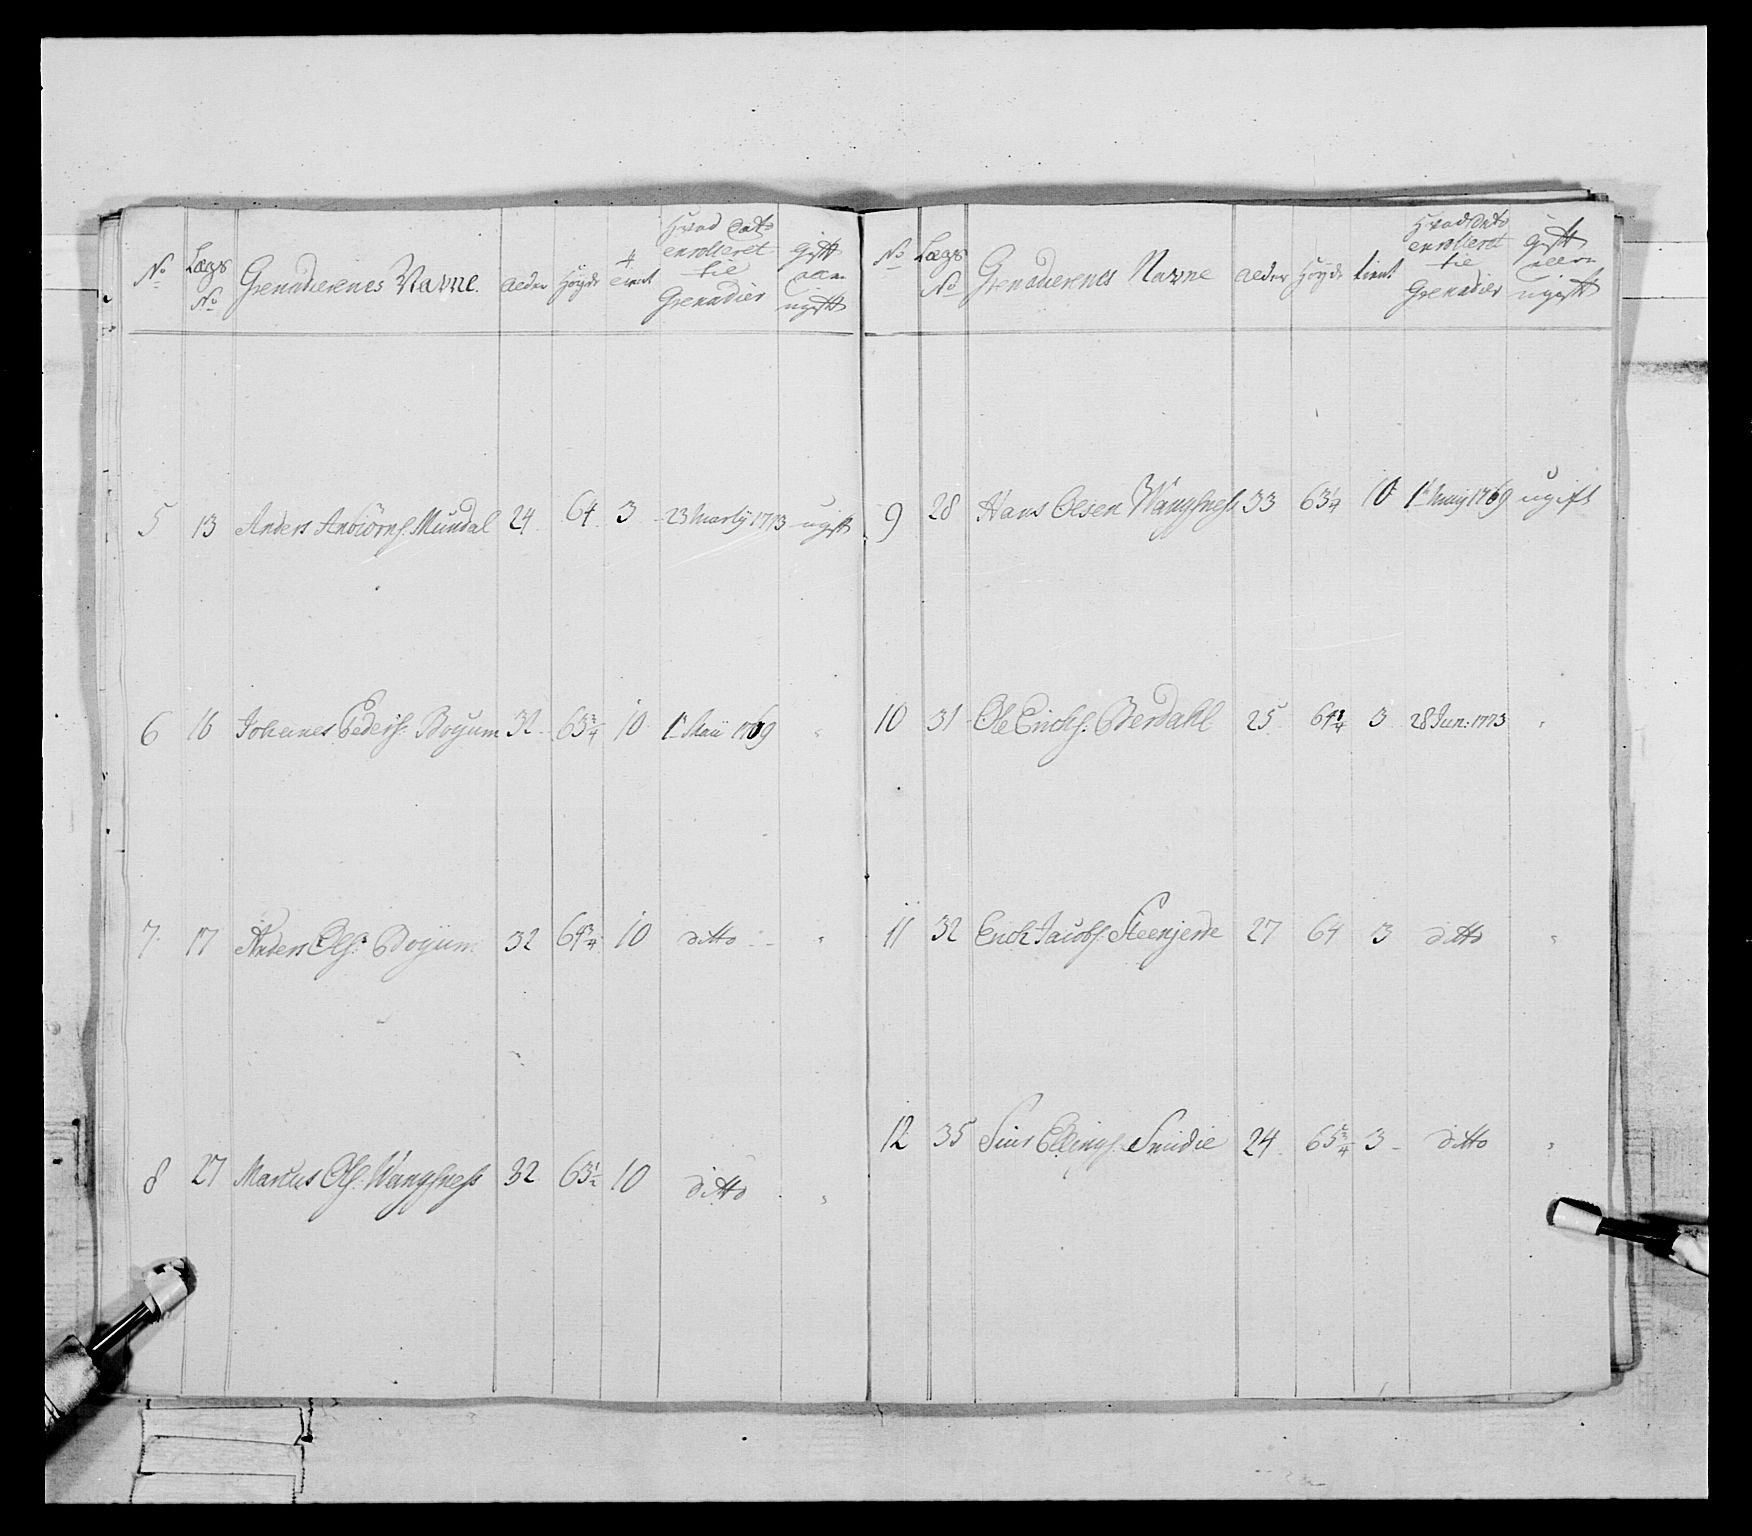 No
Lægs No
Grenaderenes Navne.
alder
Høyde
tient
Hvad Dato enrolleret til Grenadier
Gift eller ugift
5 13 Anders Anbiörns. Mundal 24 64 3 23 Martij 1773 ugift
6 16 Johannes Peders. Boyum 32 63 3/4 10 1t Maii 1769 "
7 17 Anders Ols. Boyum 32 64 3/4 10 ditto "
8 27 Marcus Ols. Wangsness 32 63 1/2 10 ditto "
No
Lægs No
Grenaderenes Navne
alder
Høyde
tient
Hvad Dato enrolleret til Grenadier
Gift eller ugift
9 28 Hans Olsen Wangsness 33 63 1/4 10 1t Maij 1769 ugift
10 31 Ole Erichs. Berdahl 25 64 1/4 3 28 Jun: 1773 "
11 32 Erich Jacobs. Steenjerde 27 64 3 ditto "
12 35 Siur Ellings. Smidie 24 65 3/4 3 ditto "